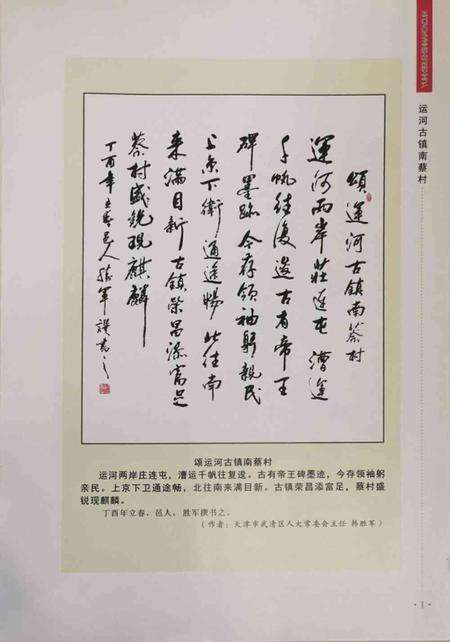 运河古镇南蔡村
頌運河古鎮南蔡村
運河兩岸莊連屯 漕運
千帆往復逡 古有帝王
碑墨跡 今存領袖躬親民
上京下衛通途暢 北往南
來滿目新 古鎮榮昌添富足
蔡村盛銳現麒麟
丁酉年立春邑人胜軍撰書之
颂运河古镇南蔡村
运河两岸庄连屯，漕运千帆往复逡。古有帝王碑墨迹，今存领袖躬
亲民。上京下卫通途畅，北往南来满目新。古镇荣昌添富足，蔡村盛
锐现麒麟。
丁酉年立春，邑人，胜军撰书之。
（作者：天津市武清区人大常委会主任 韩胜军）
·1·